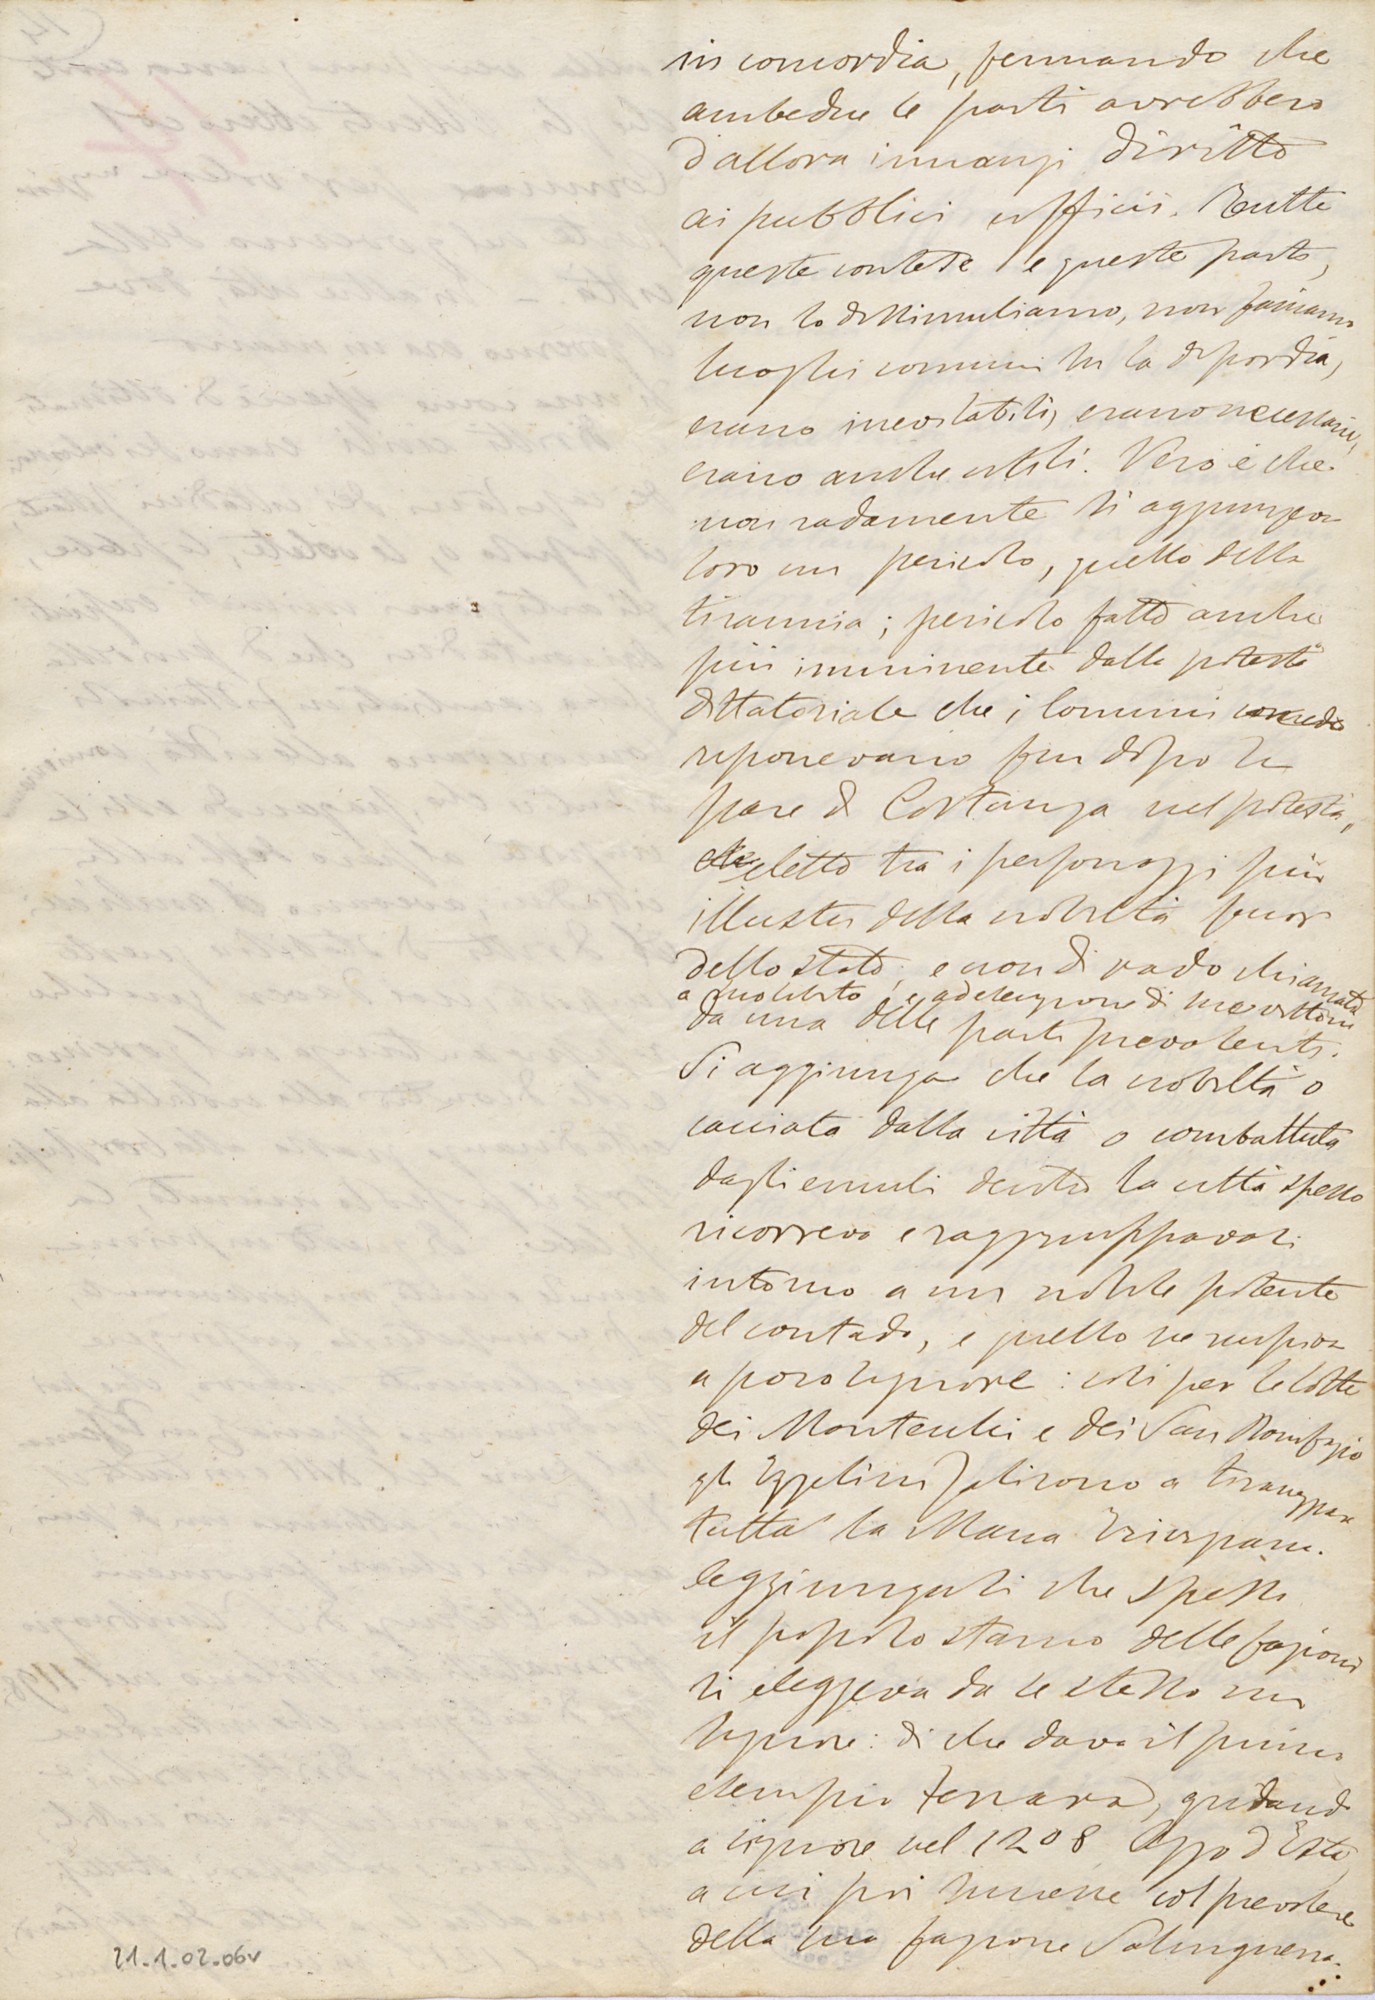 in concordia, fermando che
ambedue le parti avrebbero
d'allora innanzi diritto
ai pubblici ufficii. Tutte
queste contese e queste parti,
non lo dissimuliamo, non facciamo
luoghi comuni su la discordia,
erano inevitabili, erano necessarie,
erano anche utili. Vero è che
non radamente si aggiungea
loro un pericolo, quello della
tirannia; pericolo fatto anche
più imminente dalla potestà
dittatoriale che i Comuni
riponevano fin dopo la
pace di Costanza nel potestà,
eletto tra i personaggi più
illustri della nobiltà fuor
dello stato, e non di rado chiamato
a suo libito e a delezione di
da una delle parti prevalenti.
Si aggiunga che la nobiltà o
cacciata dalla città o combattuta
dagli emuli dentro la città spesso
ricorreva e raggruppavasi
intorno a un nobile potente
del contado, e quello ne riusciva
a poco signore: così per le lotte
dei Montecchi e dei San Bonifazio
gli Ezzelini salirono a tiranneggiare
tutta la Marca Trivigiana.
Aggiungasi che spesso
il popolo stanco delle fazioni
si eleggeva da se stesso un
signore: di che dava il primo
esempio Ferrara, gridando
a signore nel 1208 Azzo d'Este
a cui poi successe col prevalere
della sua fazione Salinguerra.
21-1-02-06v